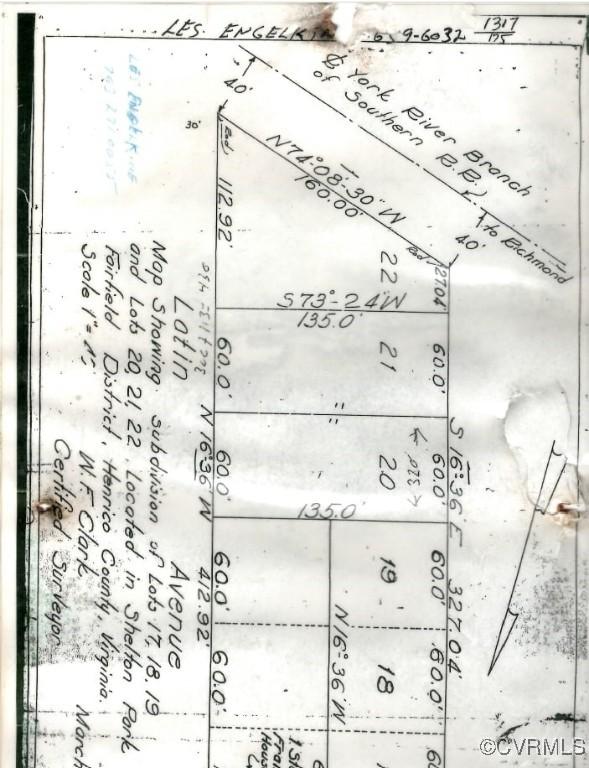 LES. ENGELKIN 6 9-6032 1317/175
LES ENGELKING
℄ York River Branch
of Southern R.R.
to Richmond
40'
40'
30'
Rod
Rod
N74°-08'-30" W
160.00'
112.92'
27.04'
22
S73°-24'W
135.0'
21
60.0'
60.0'
"
"
20
60.0'
60.0'
135.0'
19
60.0'
60.0'
18
60.0'
60.0'
N 16°36 W
S 16°-36' E 327.04'
N 16°36' W 412.92'
Latin Avenue
Map Showing subdivision of Lots 17, 18 19
and Lots 20, 21, 22 Located in Shelton Park
Fairfield District, Henrico County, Virginia.
Scale 1"=
W.F. Clark
March
Certified Surveyor
©CVRMLS